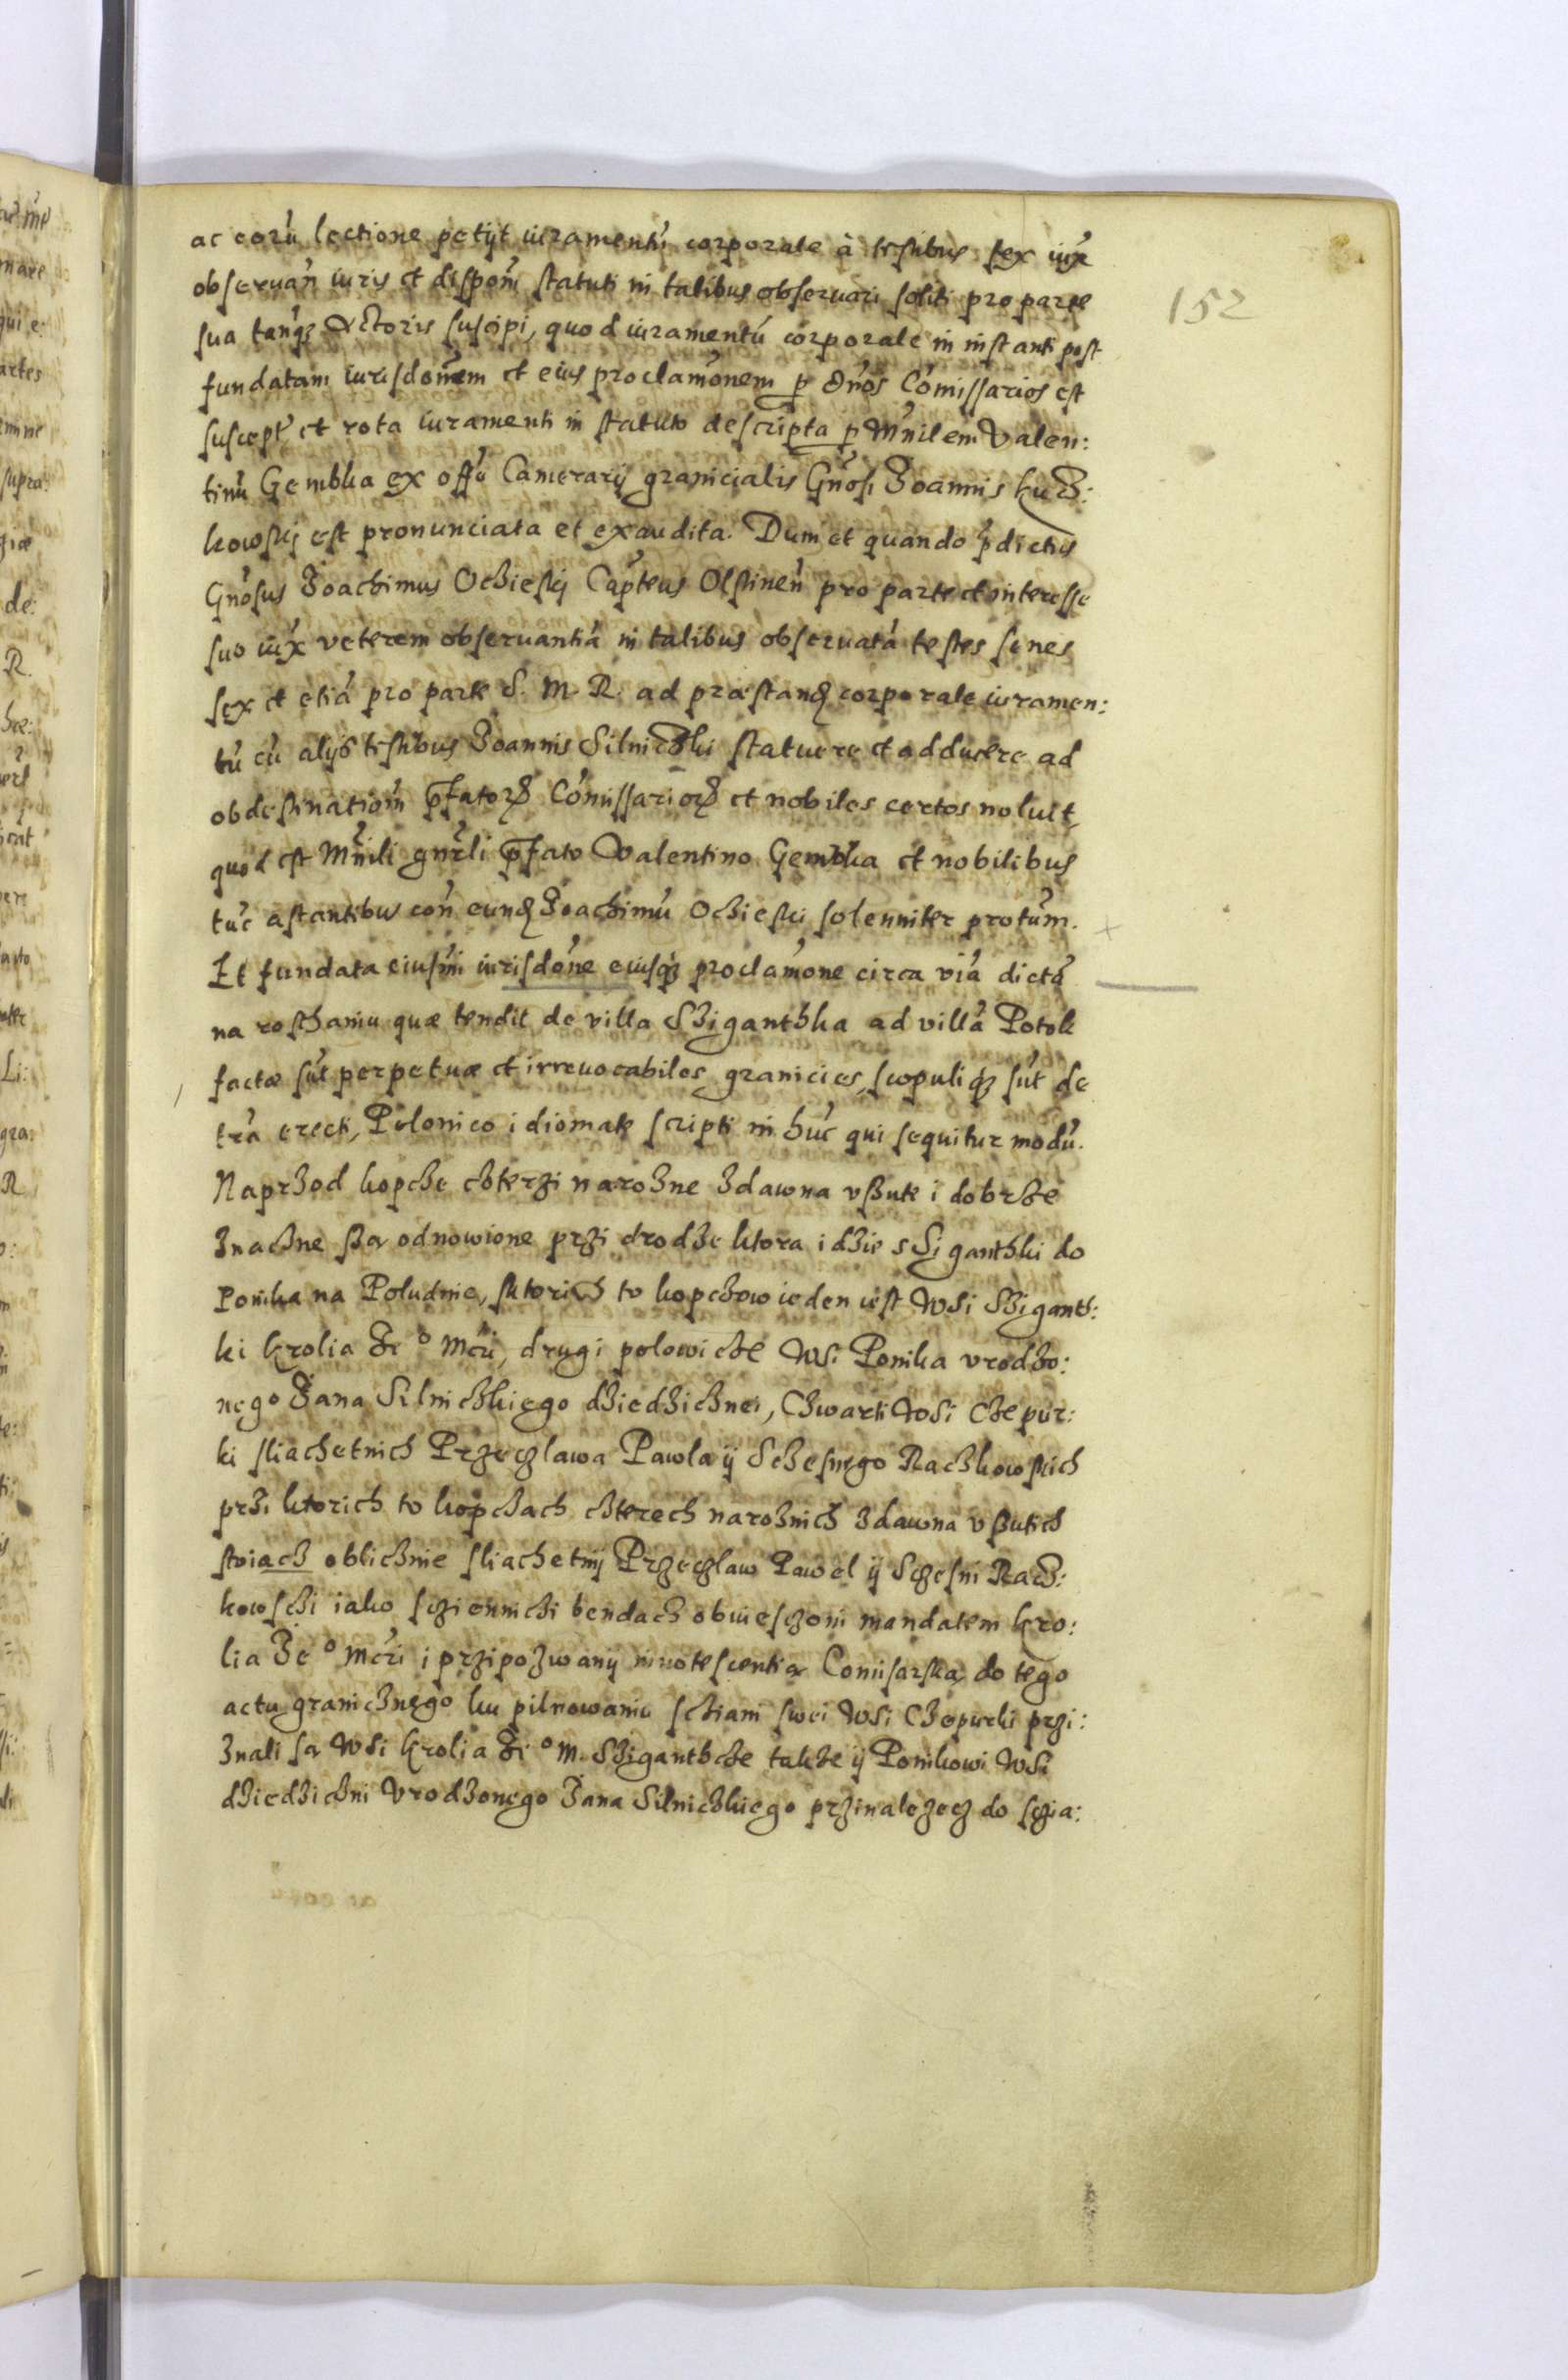 152
ac eorũ lectione petijt iuramentũ corporale à testibus sex iux̃
obseruañ iuris et disponẽ statuti in talibus obseruari soliti pro parte
sua tanq̃ȝ Actoris suscipi, quod iuramentũ corporale in instanti post
fundatam iurisdonẽm et eius proclamõnem p Dños Cõmissarios est
suscept̃ et rota iuramenti in statuto descripta p Mñilem Valen:
tinũ Gembka ex offõ Camerarij granicialis Gñosi Joannis
kowskij est pronunciata et exaudita. Dum et quando p̃dictus
Gñosus Joachimus Ocзieskij Capteus Olstineñ pro parte et interesse
suo iux̃ veterem obseruantiã in talibus obseruatã testes senes
sex et etiã pro parte S. M. R. ad præstand corporale iuramen:
tũ cũ alijs testibus Joannis Silniczki statuere et adducere ad
obdestinatioñ p̃fatorȝ Cõmissariorȝ et nobiles certos noluit,
quod est Mñili gñrli p̃fato Valentino Gembka et nobilibus
tũc astantibus coñ eund Joachimũ Oczieski solenniter protũm.
Et fundata eiusm̃i iurisdõne eiusq̃ȝ proclamõne circa viã dictã
na rosthaniu quæ tendit de villa Szigantzka ad villã Potok
factæ sũt perpetuæ et irreuocabiles granicies, scopuliq̃ȝ sũt de
trã erecti, Polonico idiomate scripti in hũc qui sequitur modũ.
Naprzod kopcze czterzi narozne zdawna vßute i dobrze
znaczne ßą odnowione przi drodze ktora idzie s Sigantzki do
Ponika na Poludnie, s ktorich to kopczow ieden iest Wsi Szigantz:
ki krolia Je° Mczi, drugi polowicze Wsi Ponika vrodzo:
nego Jana Silniczkiego dziedzicznei, Czwarti Wsi Czepur:
ki sliachetnich Przeczlawa Pawla ij Sczesnego Raczkowskich
przi ktorich to kopczach czterech naroznich zdawna vßutich
stoiacz oblicznie sliachetnij Przeczlaw Pawel ij Sczesni Racz:
kowsczi iako sczienniczi bendacz obwiesczoni mandatem kro:
lia Je° Mczi i przipozwanij innotescentią Comisarską do tego
actu granicznego ku pilnowaniu scziani swei Wsi Czepurki przi:
znali są Wsi krolia Je° M. Szigantzcze takze ij Ponikowi Wsi
dziedziczni Vrodzonego Jana Silniczkiego przinalezecz do sczia: